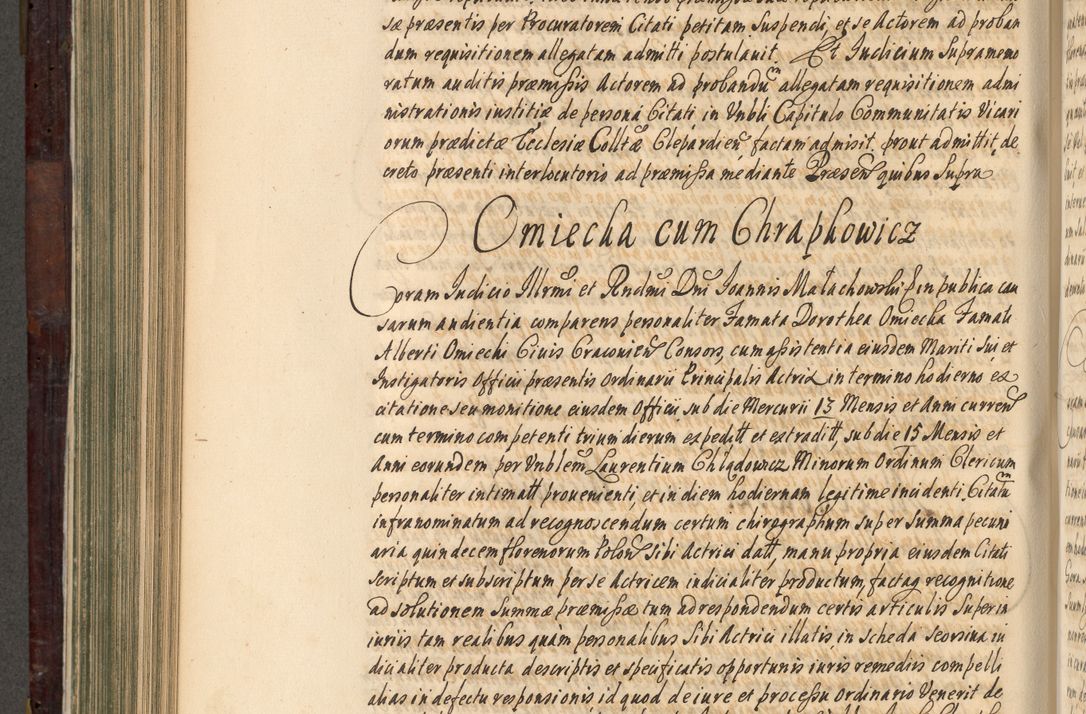 sæ præsentis per Procuratorem Citati petitam Suspendi, et se Actorem ad proban
dum requisitionem allegatam admitti postulauit. Et Iudicium Supramemo
ratum auditis præmissis Actorem ad probandũ allegatam requisitionem admi
nistrationis iustitiæ de persona Citati in Vnbli Capitulo Communitatis Vicari
orum prædictæ Ecclesiæ Colltæ Clepardien̄ factam admisit, prout admittit, de
creto præsenti interlocutorio ad præmissa mediante Præsen̄ quibus Supra
Omiecka cum Chrapkowicz
Coram Iudicio Illrmi et Rndmi Dni Ioannis Małachowski E in publica cau
sarum audientia comparens personaliter Famata Dorothea Omiecka Famati
Alberti Omiecki Ciuis Cracouien̄ Consors, cum assistentia eiusdem Mariti sui et
Instigatoris Officii præsentis Ordinarii Principalis Actrix in termino hodierno ex
citatione seu monitione eiusdem Officii, sub die Mercurii 13 Mensis et Anni curren̄
cum termino competenti trium dierum expeditt et extraditt, sub die 15 Mensis et
Anni eorundem per Vnblem Laurentium Chlądowicz Minorum Ordinum Clericum
personaliter intimatt prouenienti, et in diem hodiernam legitime incidenti, Citatũ
infranominatum ad recognoscendum certum chirographum super summa pecuni
aria quindecem florenorum Polon̄ Sibi Actrici datt, manu propria eiusdem Citati
scriptum et subscriptum per se Actricem iudicialiter productum, factaq recognitione
ad solutionem Summæ præmissæ tum ad respondendum certis articulis Super in
iuriis tam realibus quàm personalibus Sibi Actrici illatis, in scheda seorsiua iu
dicialiter producta descriptis et specificatis opportunis iuris remediis compelli
alias in defectu responsionis id quod de iure et processu ordinario Venerit de